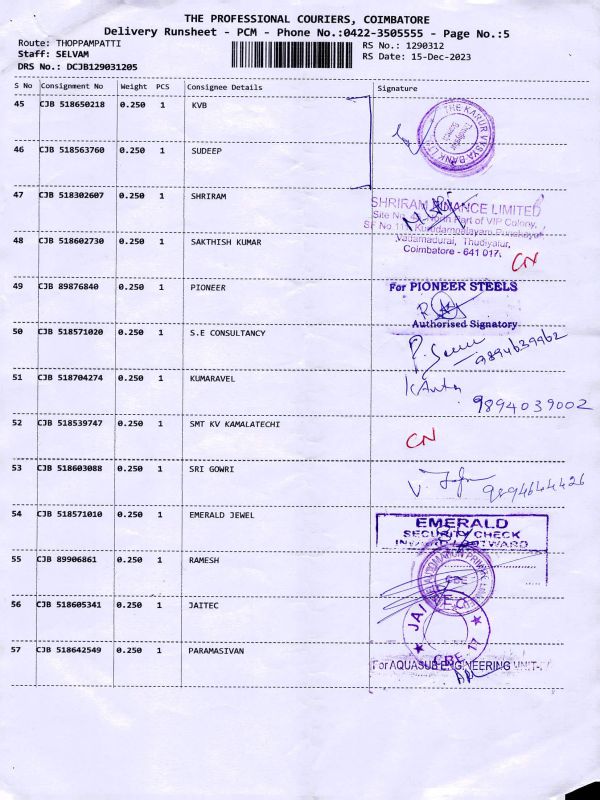 THE PROFESSIONAL COURIERS, COIMBATORE
Delivery Runsheet - PCM - Phone No.:0422-3505555 - Page No.:5
Route: THOPPAMPATTI
RS No.: 1290312
Staff: SELVAM
RS Date: 15-Dec-2023
DRS No.: DCJB129031205
S No Consignment No Weight PCS Consignee Details Signature
45 CJB 518650218 0.250 1 KVB
THE KARUR VYSYA BANK LTD
46 CJB 518563760 0.250 1 SUDEEP
47 CJB 518302607 0.250 1 SHRIRAM
SHRIRAM FINANCE LIMITED
Site No. Part of VIP Colony,
SF No. 11 Kurudampalayam
Vadamadurai, Thudiyalur,
Coimbatore - 641 017.
48 CJB 518602730 0.250 1 SAKTHISH KUMAR CN
49 CJB 89876840 0.250 1 PIONEER
For PIONEER STEELS
Authorised Signatory
50 CJB 518571020 0.250 1 S.E CONSULTANCY
9894639962
51 CJB 518704274 0.250 1 KUMARAVEL
9894039002
52 CJB 518539747 0.250 1 SMT KV KAMALATECHI CN
53 CJB 518603088 0.250 1 SRI GOWRI
9894644426
54 CJB 518571010 0.250 1 EMERALD JEWEL
EMERALD
SECURITY CHECK
INWARD / OUTWARD
55 CJB 89906861 0.250 1 RAMESH
56 CJB 518605341 0.250 1 JAITEC
JAITEC
CBE-17
57 CJB 518642549 0.250 1 PARAMASIVAN
For AQUASUB ENGINEERING UNIT-